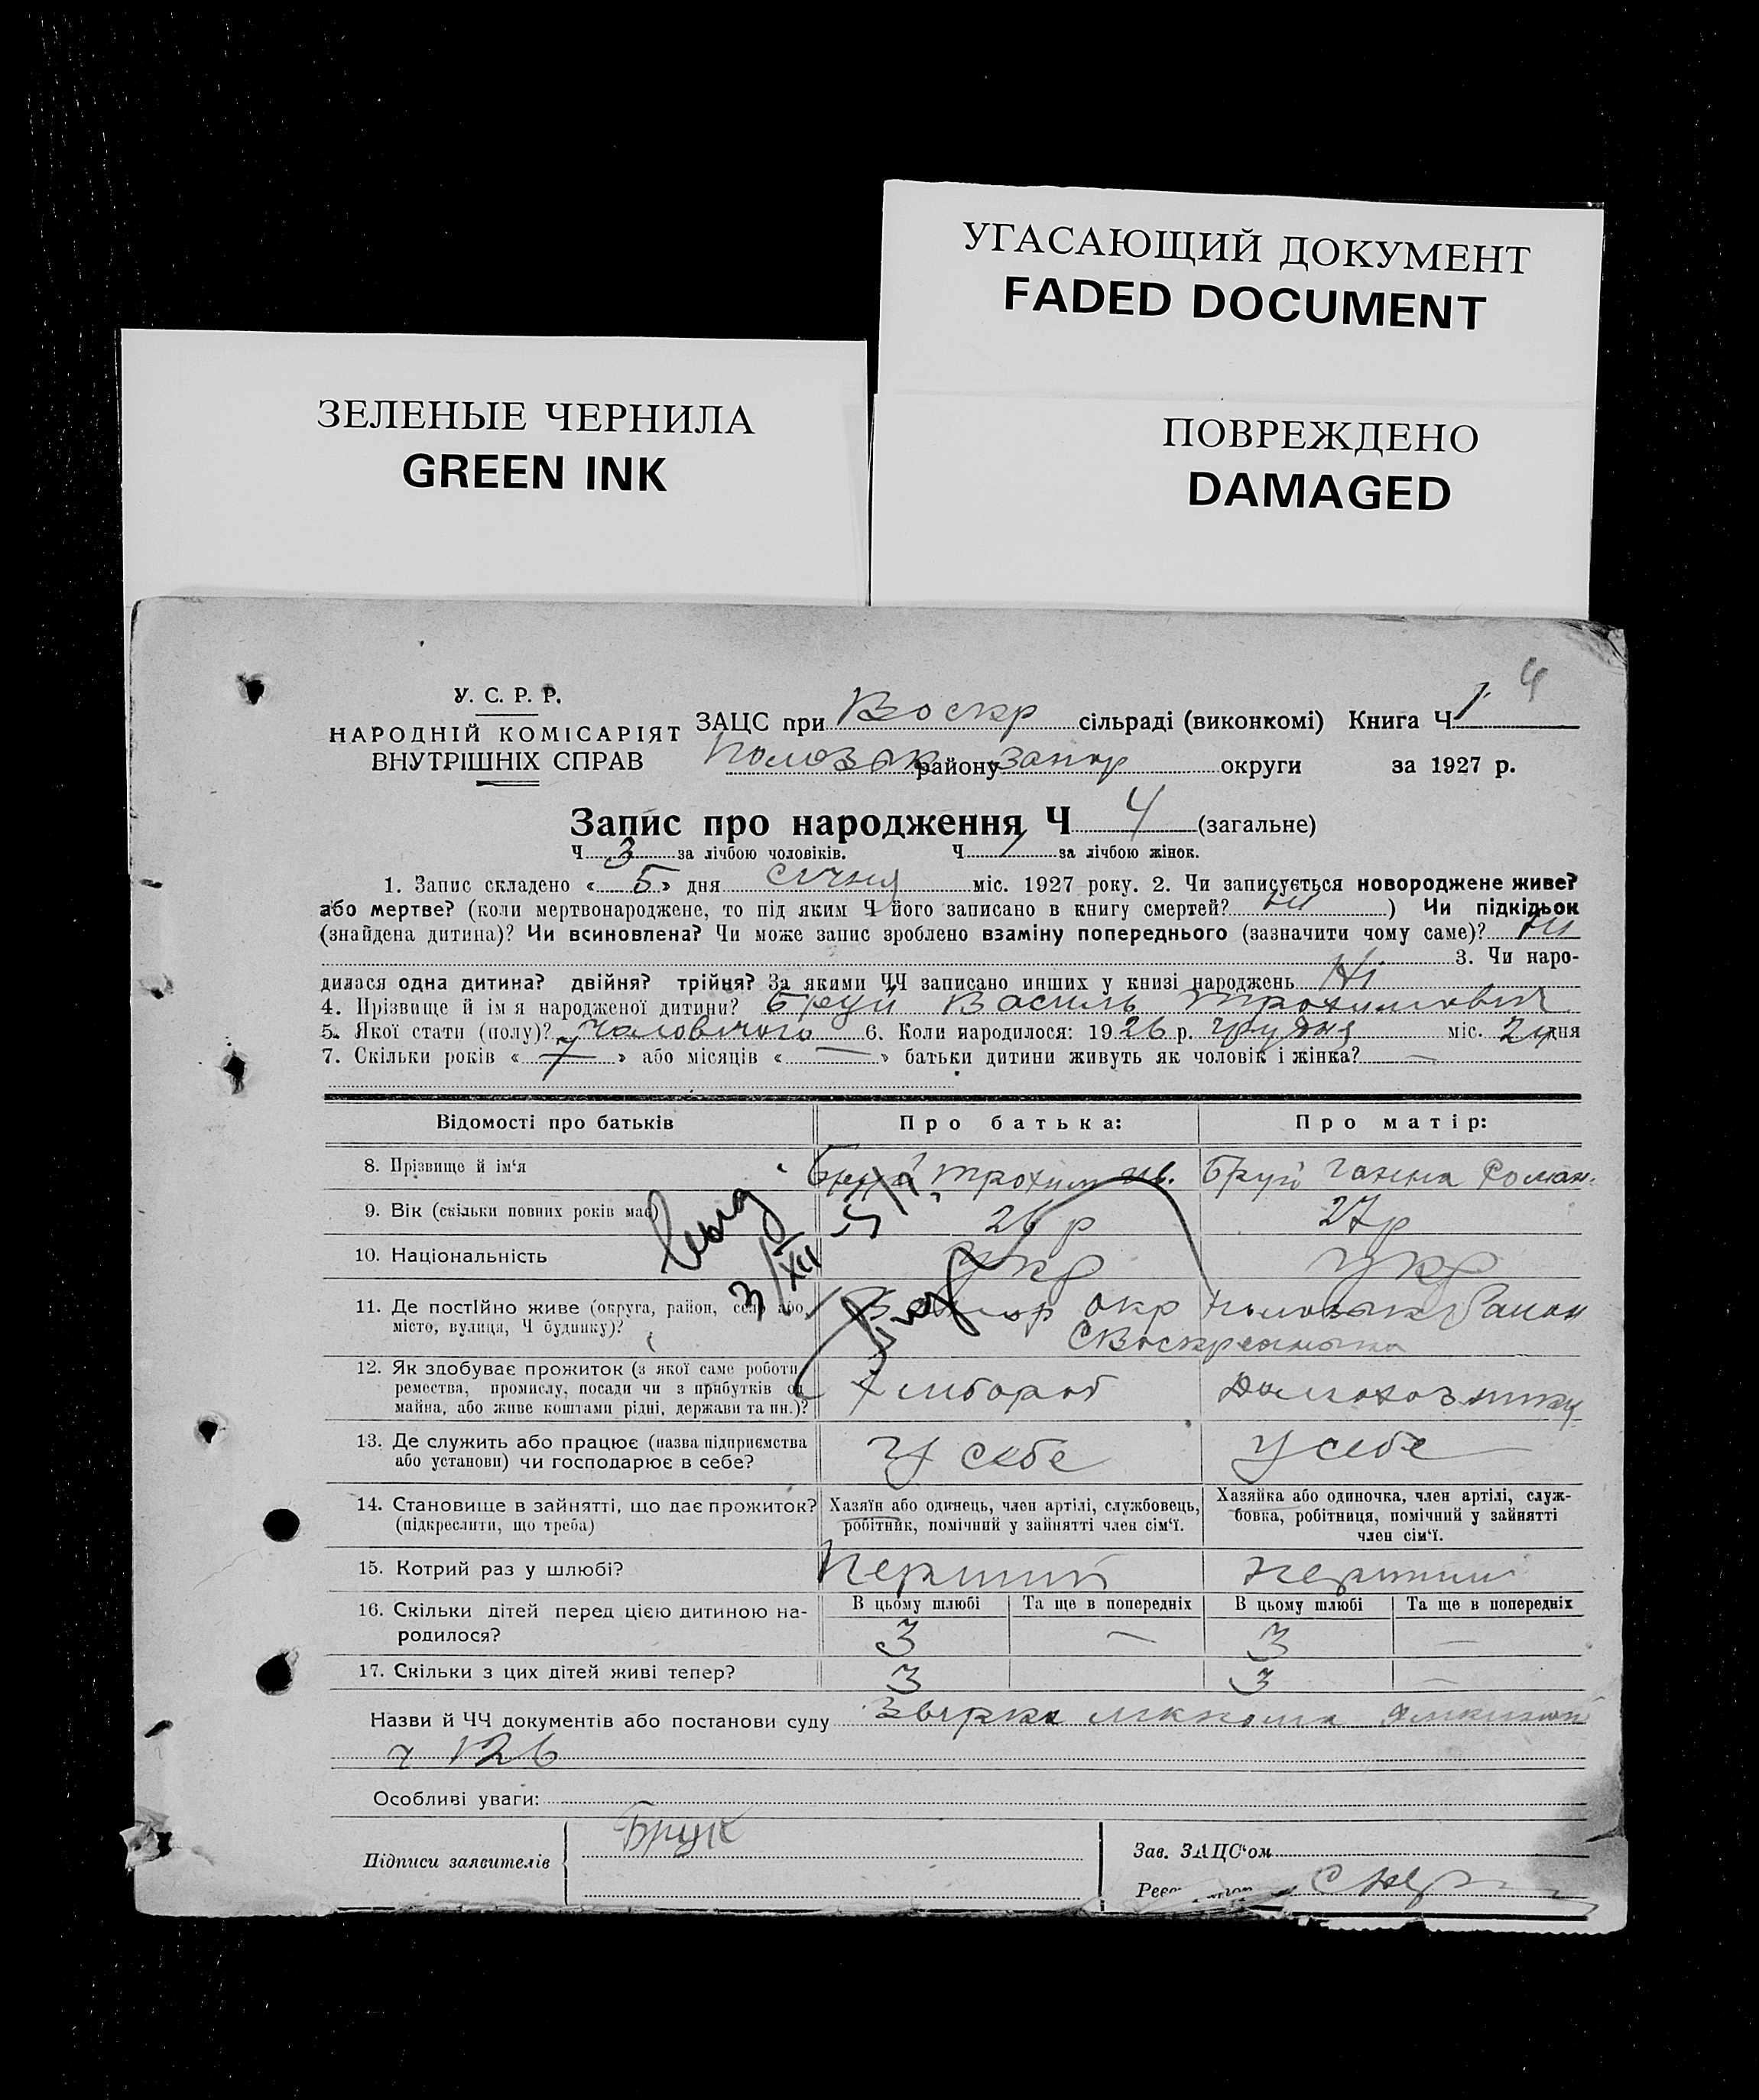 УГАСАЮЩИЙ ДОКУМЕНТ
FADED DOCUMENT
ЗЕЛЕНЫЕ ЧЕРНИЛА
GREEN INK
ПОВРЕЖДЕНО
DAMAGED
4
У. С. Р. Р.
НАРОДНІЙ КОМІСАРІЯТ
ВНУТРІШНІХ СПРАВ
ЗАЦС при Воскр сільраді (виконкомі) Книга Ч 1
Пологьк району Запор округи за 1927 р.
Запис про народження Ч 4 (загальне)
Ч 3 за лічбою чоловіків. Ч 1 за лічбою жінок.
1. Запис складено « 5 » дня січня міс. 1927 року. 2. Чи записується новороджене живе?
або мертве? (коли мертвонароджене, то під яким Ч його записано в книгу смертей? ні ) Чи підкідьок
(знайдена дитина)? Чи всиновлена? Чи може запис зроблено взаміну попереднього (зазначити чому саме)? ні
3. Чи наро-
дилася одна дитина? двійня? трійня? За якими ЧЧ записано инших у книзі народжень Ні
4. Прізвище й ім я народженої дитини? Бруй Василь Трохимович
5. Якої стати (полу)? Чоловічого 6. Коли народилося: 1926 р. грудня міс. 24 дня
7. Скільки років « 7 » або місяців « — » батьки дитини живуть як чоловік і жінка? —
Відомості про батьків Про батька: Про матір:
8. Прізвище й ім‘я Бруй Трохим Ів. Бруй Ганна Роман.
9. Вік (скільки повних років має) 26 р 27 р
10. Національність Укр Укр
3/XII
11. Де постійно живе (округа, район, село або місто, вулиця, Ч будинку)? окр район
12. Як здобуває прожиток (з якої саме роботи, ремества, промислу, посади чи з прибутків од майна, або живе коштами рідні, держави та ин.)? Хлібороб
13. Де служить або працює (назва підприємства або установи) чи господарює в себе? У себе У себе
14. Становище в зайнятті, що дає прожиток? (підкреслити, що треба) Хазяїн або одинець, член артілі, службовець, робітник, помічний у зайнятті член сім‘ї. Хазяйка або одиночка, член артілі, служ-бовка, робітниця, помічний у зайнятті член сім‘ї.
15. Котрий раз у шлюбі? Перший Перший
В цьому шлюбі Та ще в попередніх В цьому шлюбі Та ще в попередніх
16. Скільки дітей перед цією дитиною на-родилося? 3 — 3 —
17. Скільки з цих дітей живі тепер? 3 3 —
Назви й ЧЧ документів або постанови суду
ч 126
Особливі уваги:
Підписи заявителів Брук
Зав. ЗАЦС‘ом